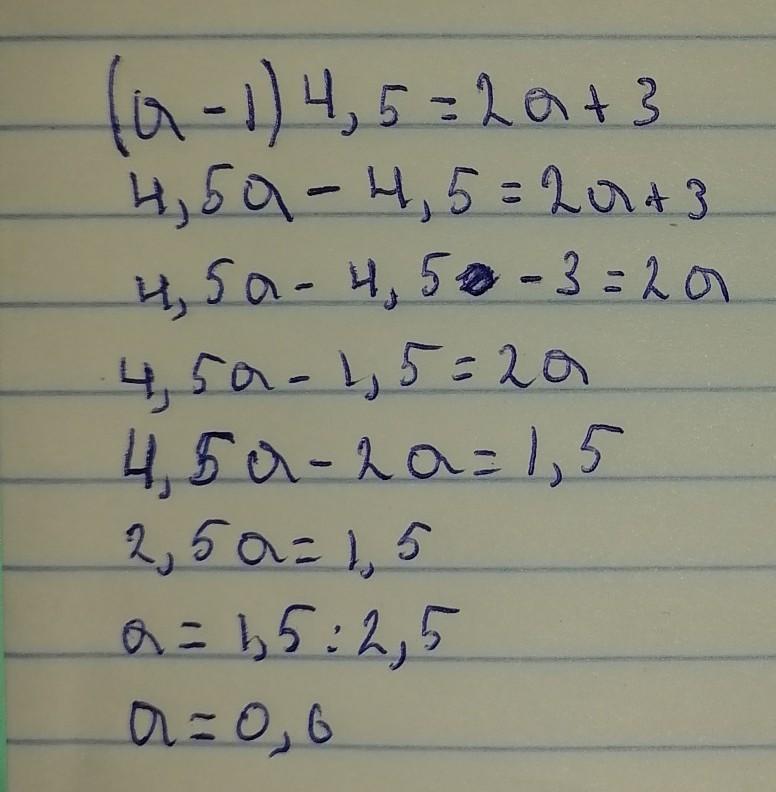 (a - 1) 4,5 = 2a + 3
4,5a - 4,5 = 2a + 3
4,5a - 4,5 - 3 = 2a
4,5a - 1,5 = 2a
4,5a - 2a = 1,5
2,5a = 1,5
a = 1,5 : 2,5
a = 0,6